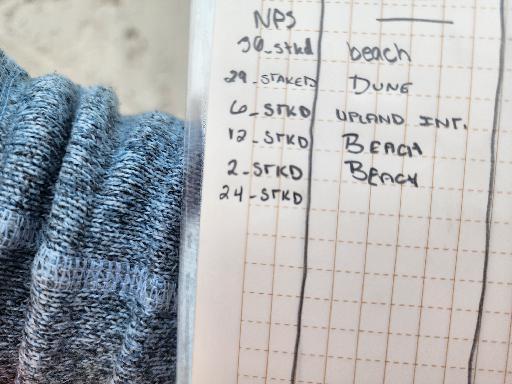 NPS
30_stkd beach
29_STAKED DUNE
6_STKD UPLAND INT.
12_STKD BEACH
2_STKD BEACH
24_STKD